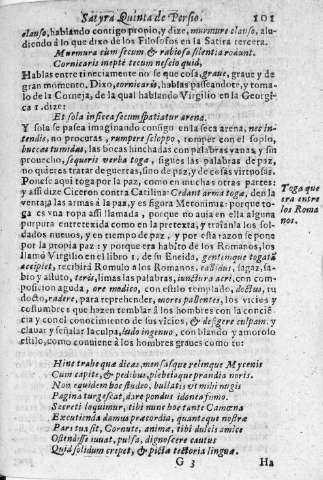 Satyra Quinta de Persio. 101
clauso, hablando contigo propio, y dize, murmure clauso, alu-
diendo à lo que dixo de los Filosofos en la Satira tercera.
Murmura cum secum & rabiosa silentia rodunt.
Cornicaris ineptè tecum nescio quid,
Hablas entre ti neciamente no se que cosa, graue, graue y de
gran momento. Dixo, cornicaris, hablas passeandote, y toma-
lo de la Corneja, de la qual hablando Virgilio en la Georgi-
ca 1. dize:
Et sola in sicca secum spatiatur arena.
Y sola se passea imaginando consigo en la seca arena, nec in-
tendis, no procuras, rumpere scloppo, romper con el soplo,
buccas tumidas, las bocas hinchadas con palabras vanas, y sin
prouecho, sequeris verba toga, sigues las palabras de paz,
no quieres tratar de guerras, sino de paz, y de cosas virtuosas.
Ponese aqui toga por la paz, como en muchas otras partes:
y assi dize Ciceron contra Catilena: Cedant arma toga, den la
ventaja las armas à la paz, y es figura Metonimia: porque to-
ga es vna ropa assi llamada, porque no auia en ella alguna
purpura entretexida como en la pretexta, y traianla los sol-
dados nueuos, y en tiempo de paz, y por esta razon se pone
por la propia paz: y porque era habito de los Romanos, los
llamò Virgilio en el libro 1. de su Eneida, gentemque togatã
accipiet, recibirà Romulo à los Romanos. callidus, sagaz, sa-
bio, y astuto, teris, limas las palabras, iunctura acri, con com-
posicion aguda, ore modico, con estilo templado, doctus, tu
docto, radere, para reprehender, mores pallentes, los vicios y
costumbres que hazen temblar à los hombres con la concie-
cia y con el conocimiento de sus vicios, & defigere culpam, y
clauar y señalar la culpa, ludo ingenuo, con blando y amoroso
estilo, como conuiene à los hombres graues como tu:
Toga que
era entre
los Roma
nos.
Hinc trahe qua dicas, mensasque relinque Mycenis
Cum capite, & pedibus, plebeiaque prandia noris.
Non equidem hoc studeo, bullatis vt mihi nugis
Pagina turgescat, dare pondus idonea fumo.
Secreti loquimur, tibi nunc hortante Camœna
Excutienda damus præcordia, quantaque nostra
Pars tua sit, Cornute, anima, tibi dulcis amice
Ostendisse iuuat, pulsa, dignoscere cautus
Quid solidum crepet, & picta tectoria lingua.
G 3 Ha